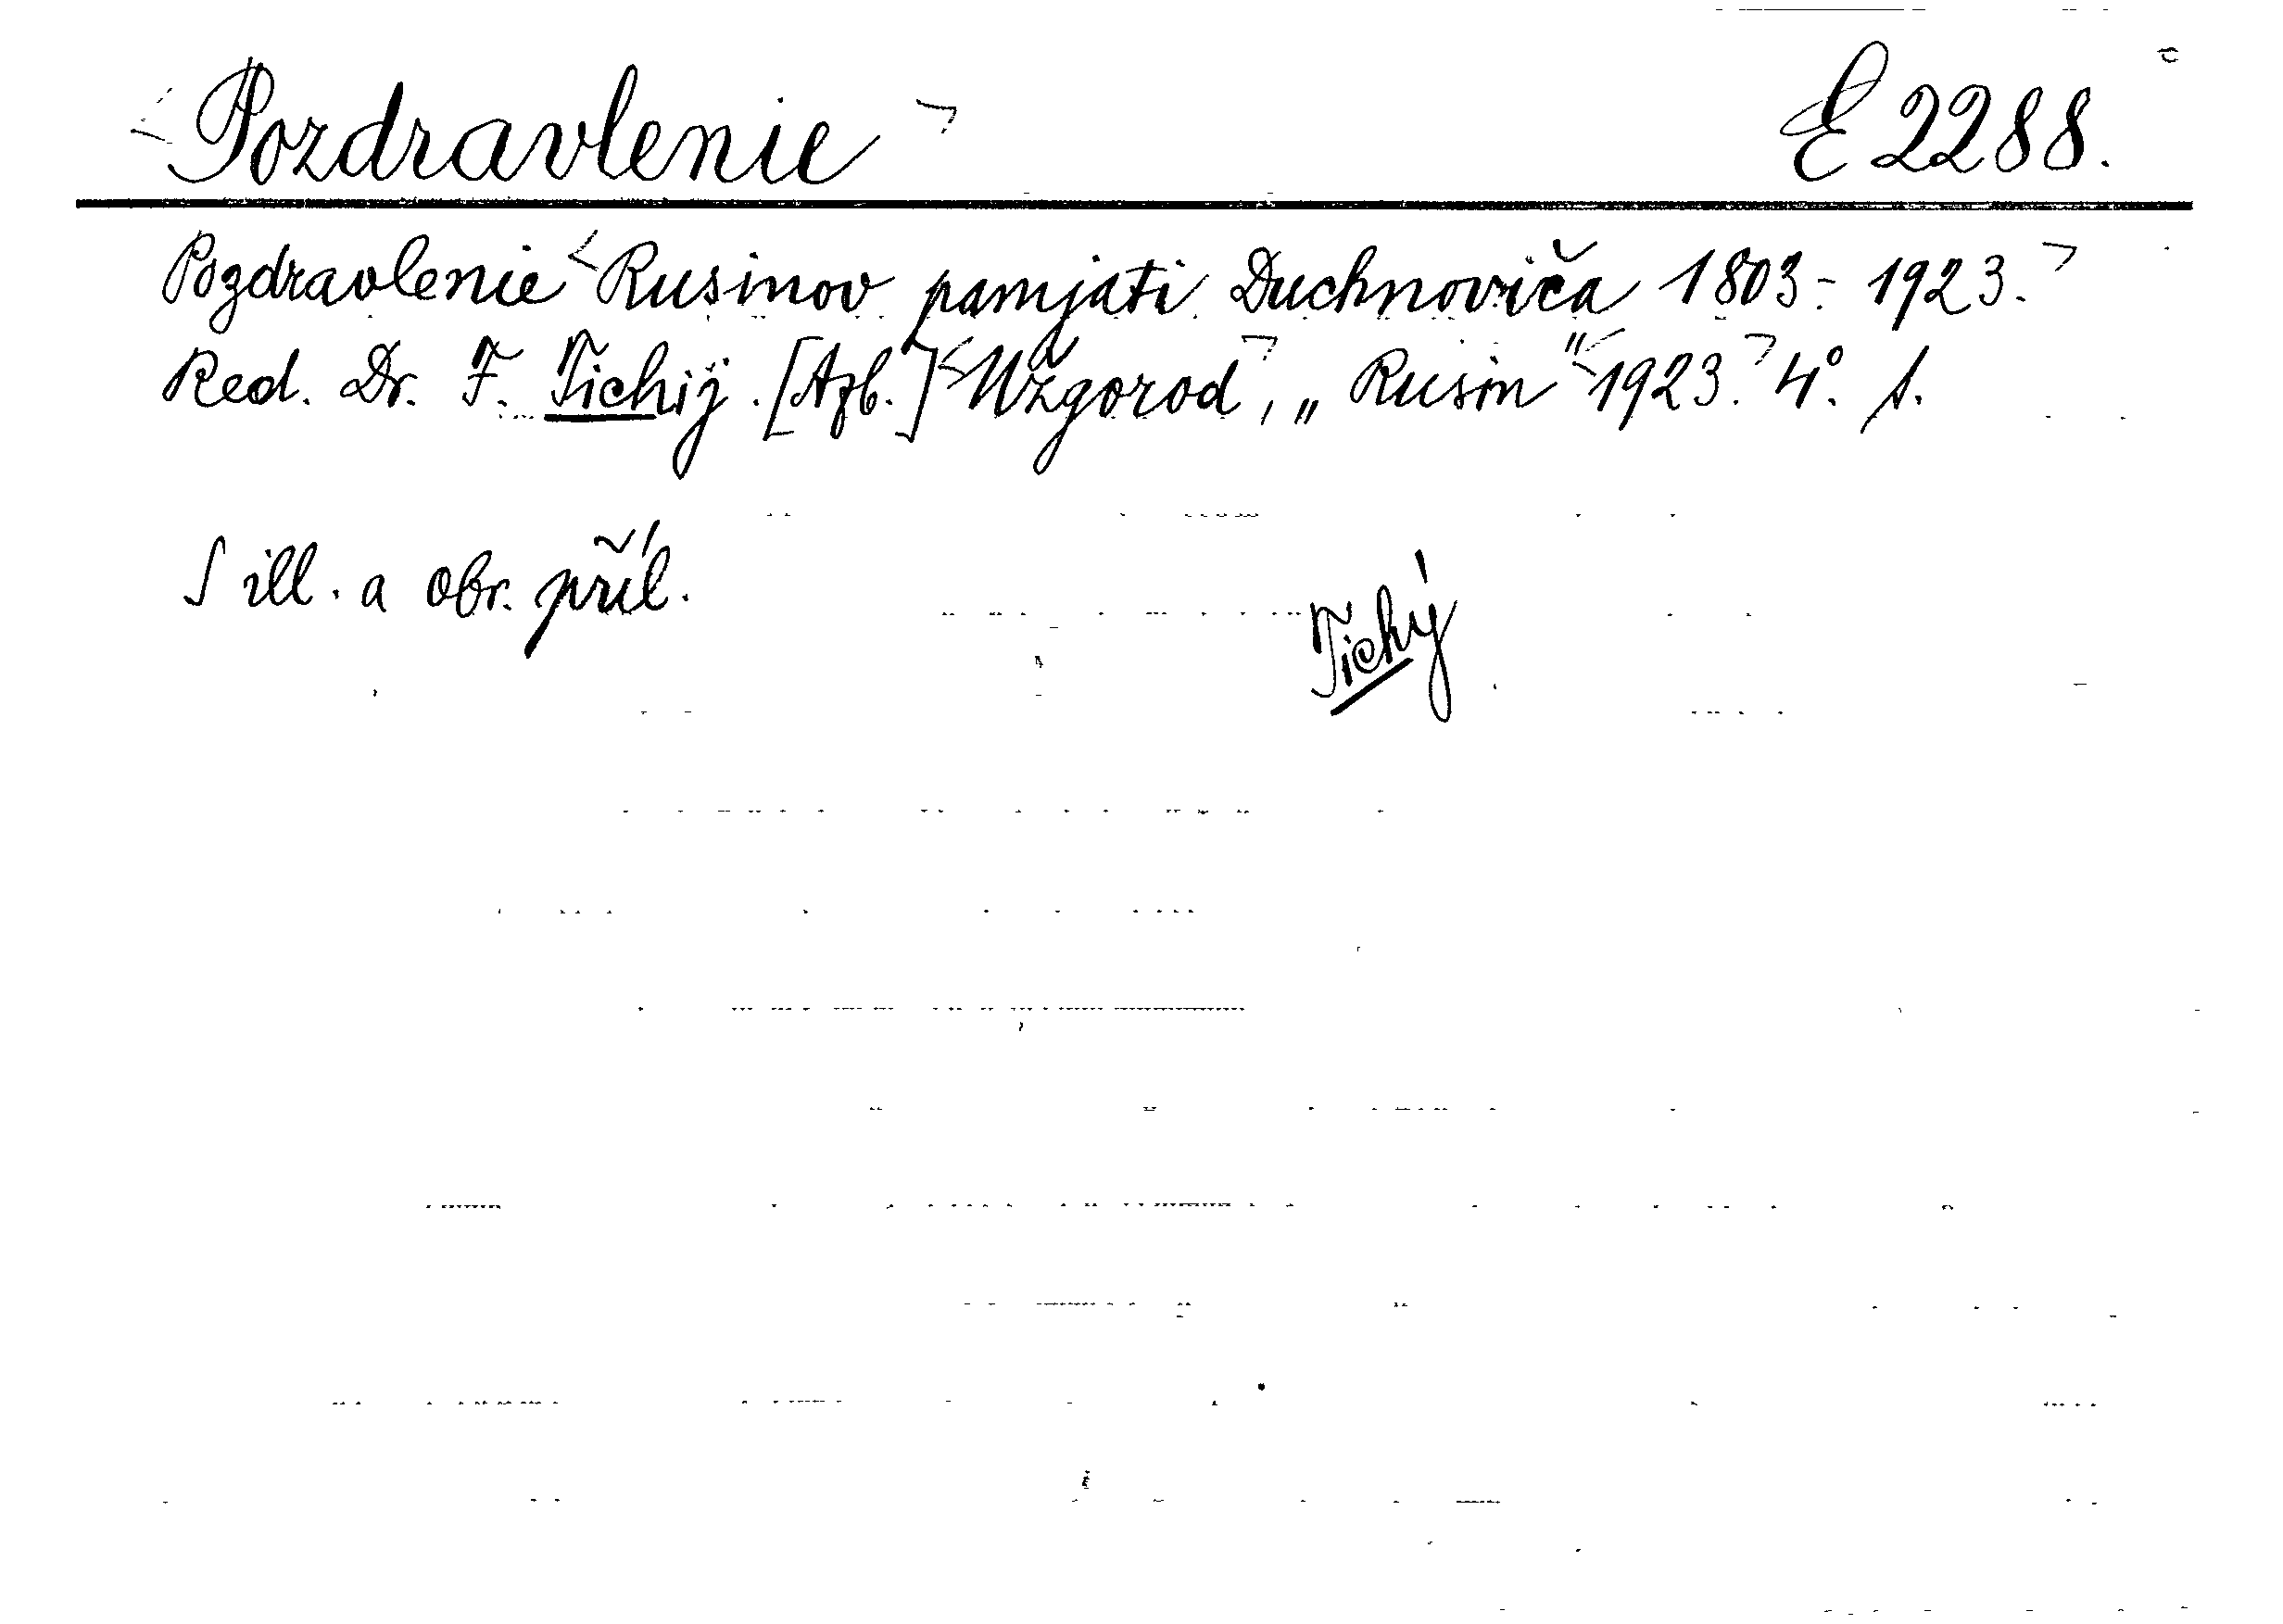 Pozdravlenie E 2288.
Pozdravlenie Rusinov pamjati Duchnoviča 1803 - 1923.
Red. Dr. F. Tichij. [Azb.] Užgorod, „Rusin" 1923. 4° s.
S ill. a obr. příl.
Tichý